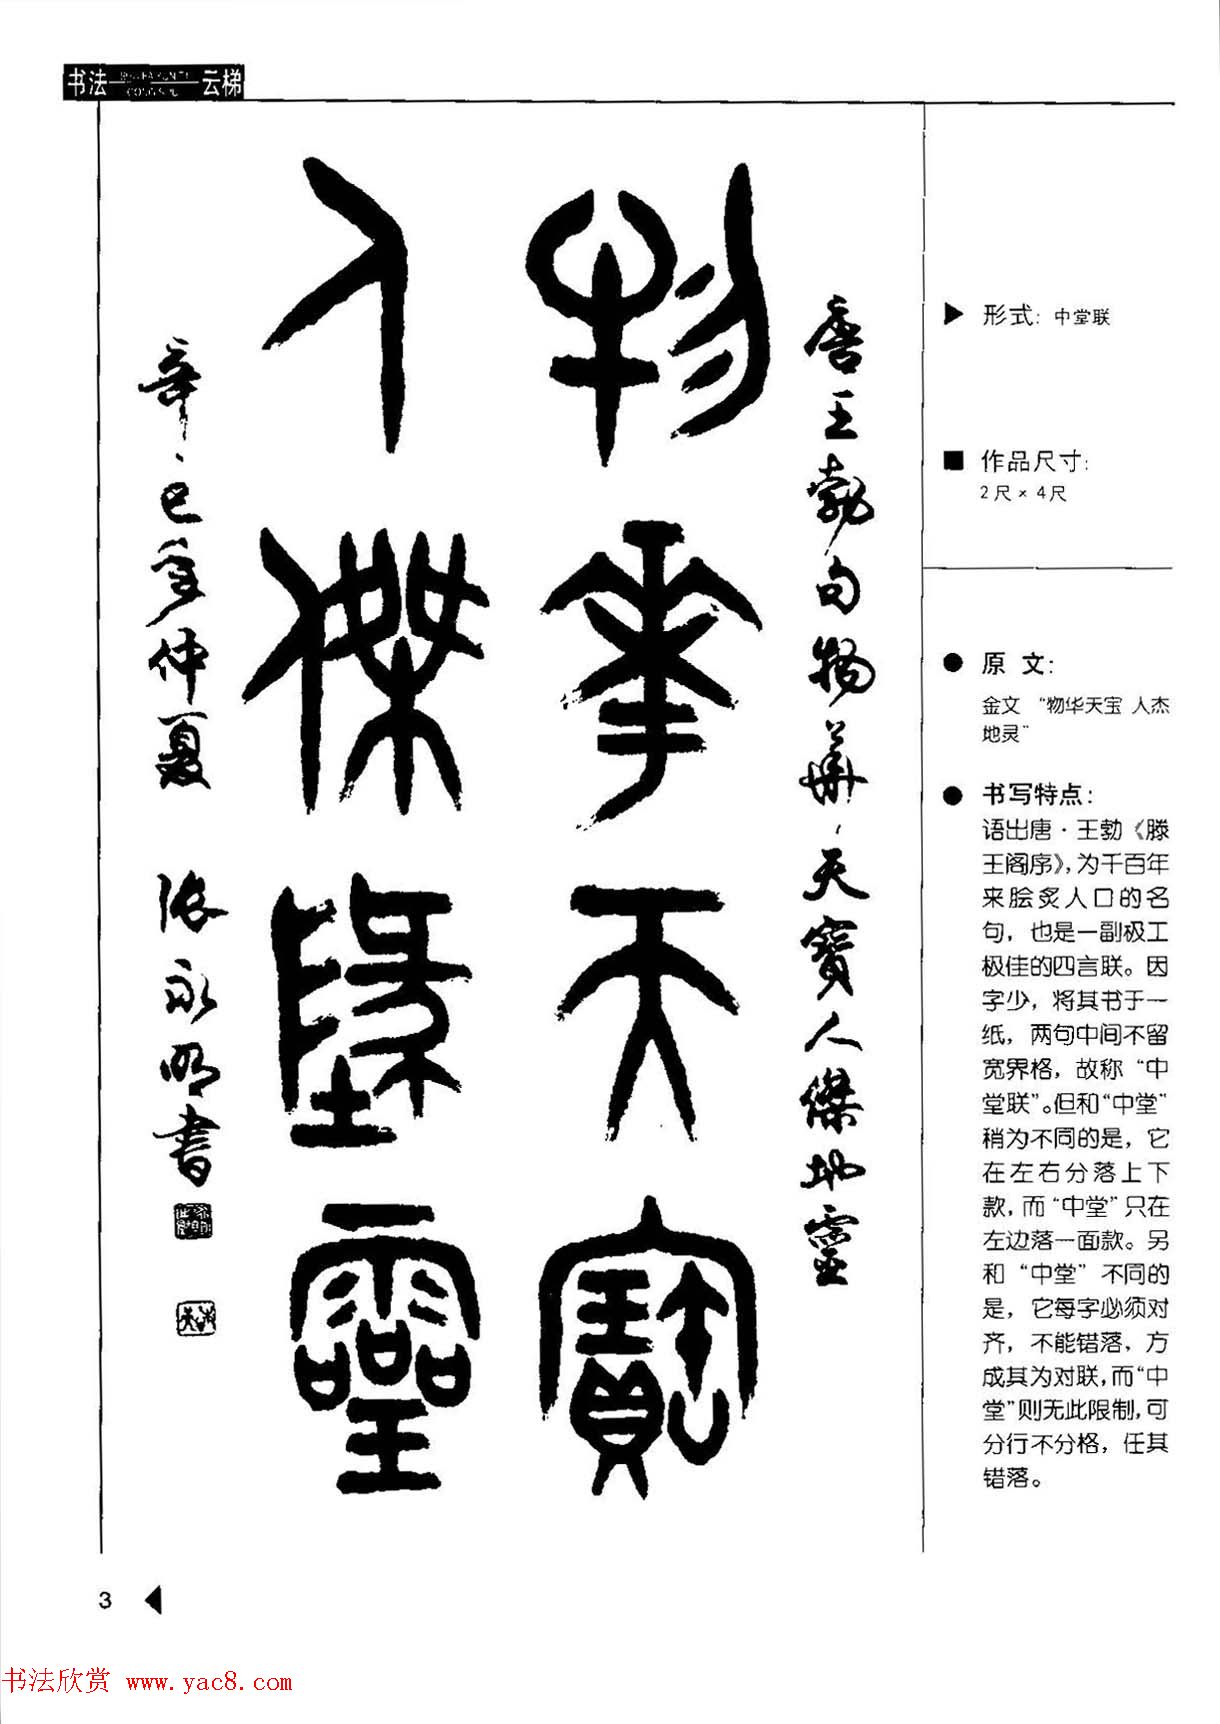 书法
云梯
物华天宝
人杰地灵
唐王勃句物華天寶人傑地靈
辛巳年仲夏 张永明書
形式：中堂联
作品尺寸：
2尺×4尺
原 文：
金文 “物华天宝 人杰
地灵”
书写特点：
语出唐·王勃《滕
王阁序》，为千百年
来脍炙人口的名
句，也是一副极工
极佳的四言联。因
字少，将其书于一
纸，两句中间不留
宽界格，故称“中
堂联”。但和“中堂”
稍为不同的是，它
在左右分落上下
款，而“中堂”只在
左边落一面款。另
和“中堂”不同的
是，它每字必须对
齐，不能错落，方
成其为对联，而“中
堂”则无此限制，可
分行不分格，任其
错落。
3
书法欣赏 www.yac8.com